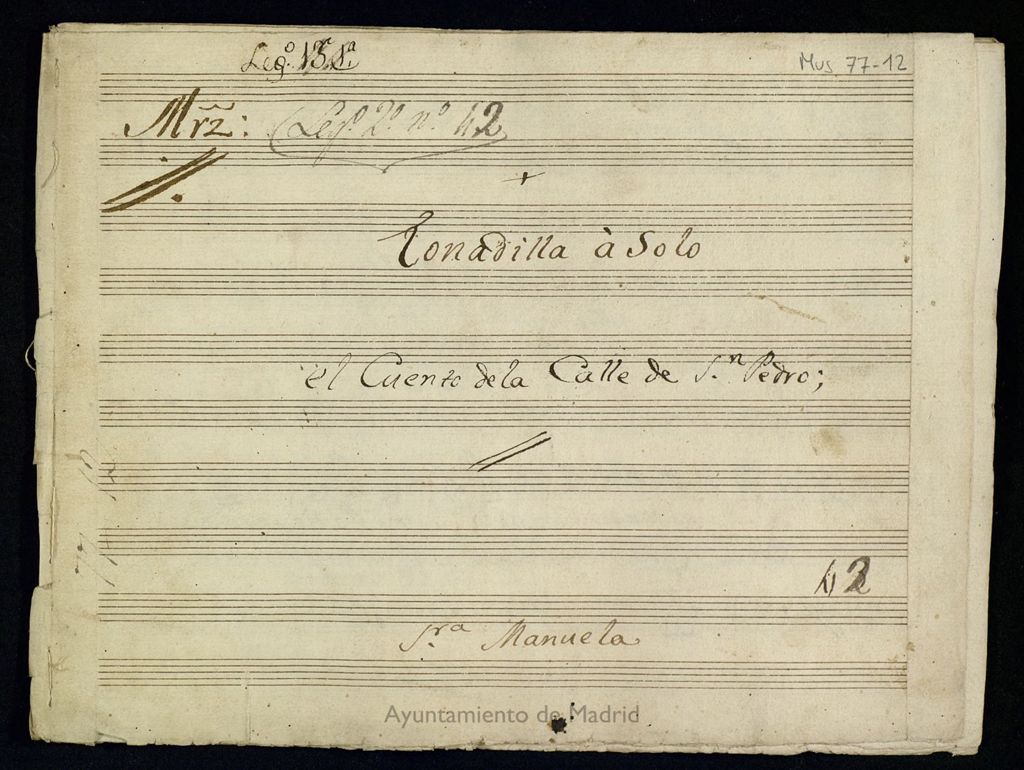 Leg.º 13 1.ª
Mus 77-12
Mrz̃:
(Leg.º 2.º n.º 42
Tonadilla à Solo
el Cuento de la Calle de S.n Pedro;
42
S.ra Manuela
Ayuntamiento de Madrid